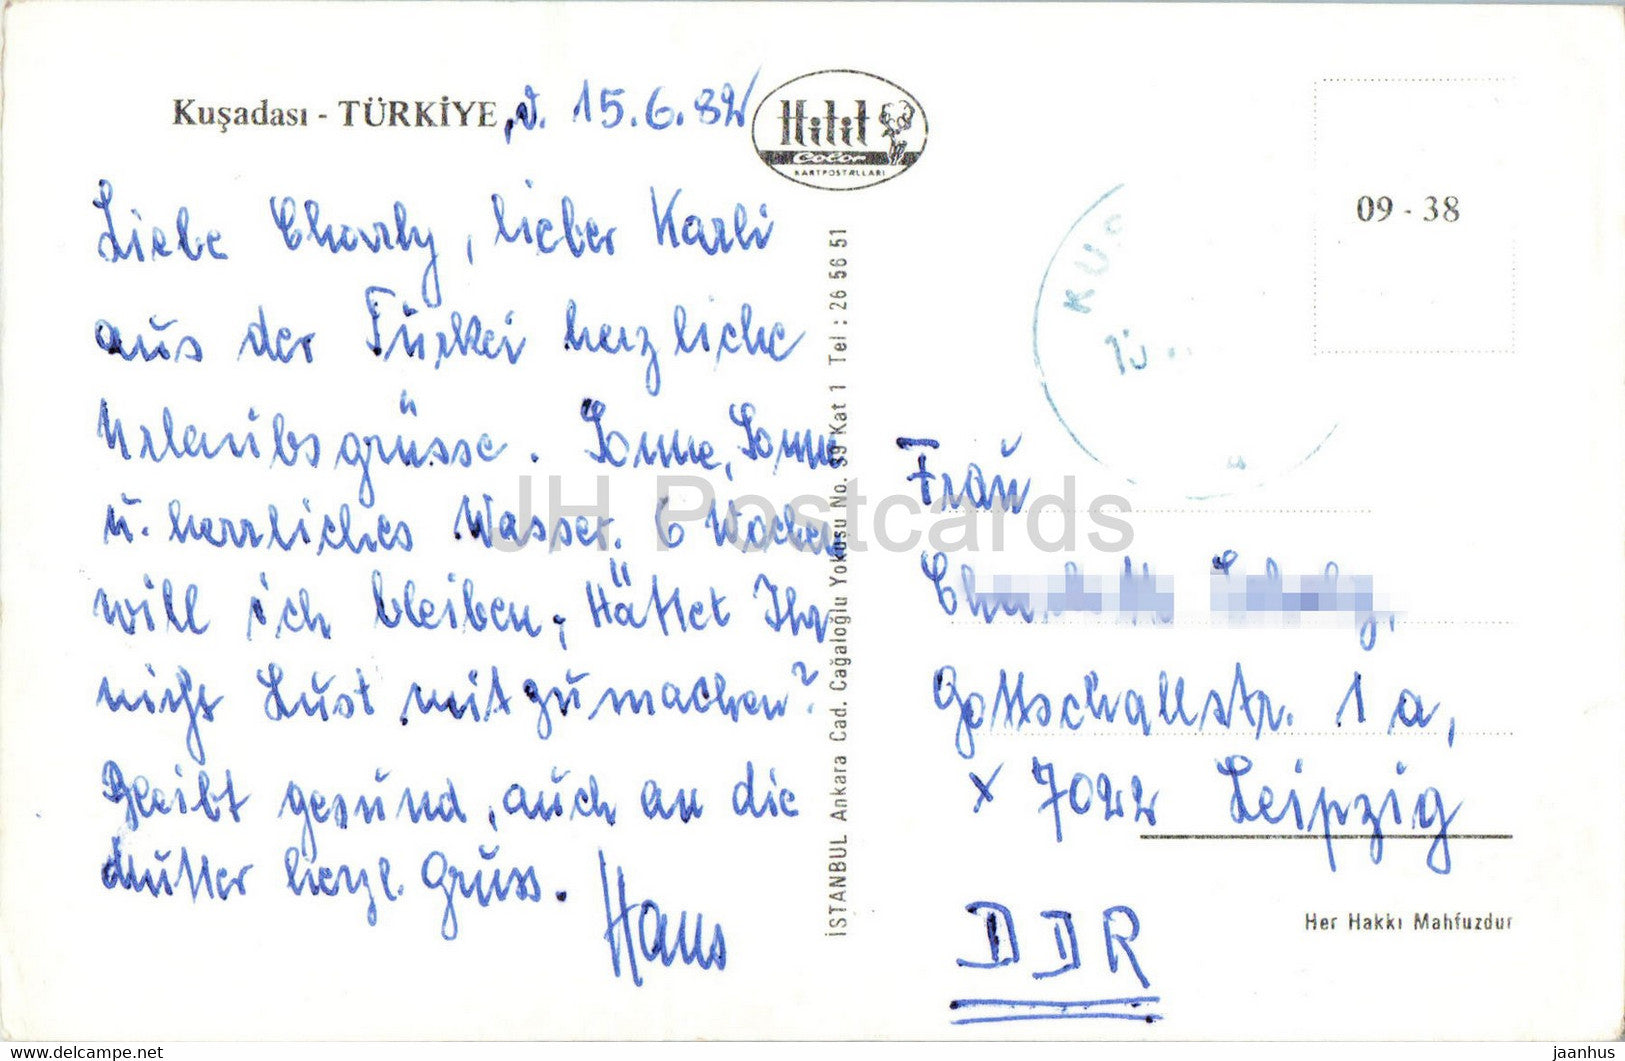 Kuşadası - TÜRKİYE, d. 15.6.82
Hitit
Color
KARTPOSTALLARI
Liebe Charly, lieber Karli
aus der Türkei herzliche
Urlaubsgrüsse. Sonne, Sonne
u. herrliches Wasser. 6 Wochen
will ich bleiben, Hättet Ihr
nicht Lust mitzumachen?
Bleibt gesund, auch an die
Mutter herzl. Gruss.
Hans
İSTANBUL Ankara Cad. Cağaloğlu Yokuşu No. 39 Kat 1 Tel : 26 56 51
KUŞ
15
09 - 38
Frau
Gottschallstr. 1a,
x 7022 Leipzig
DDR
Her Hakkı Mahfuzdur
JH Postcards
www.delcampe.net
jaanhus